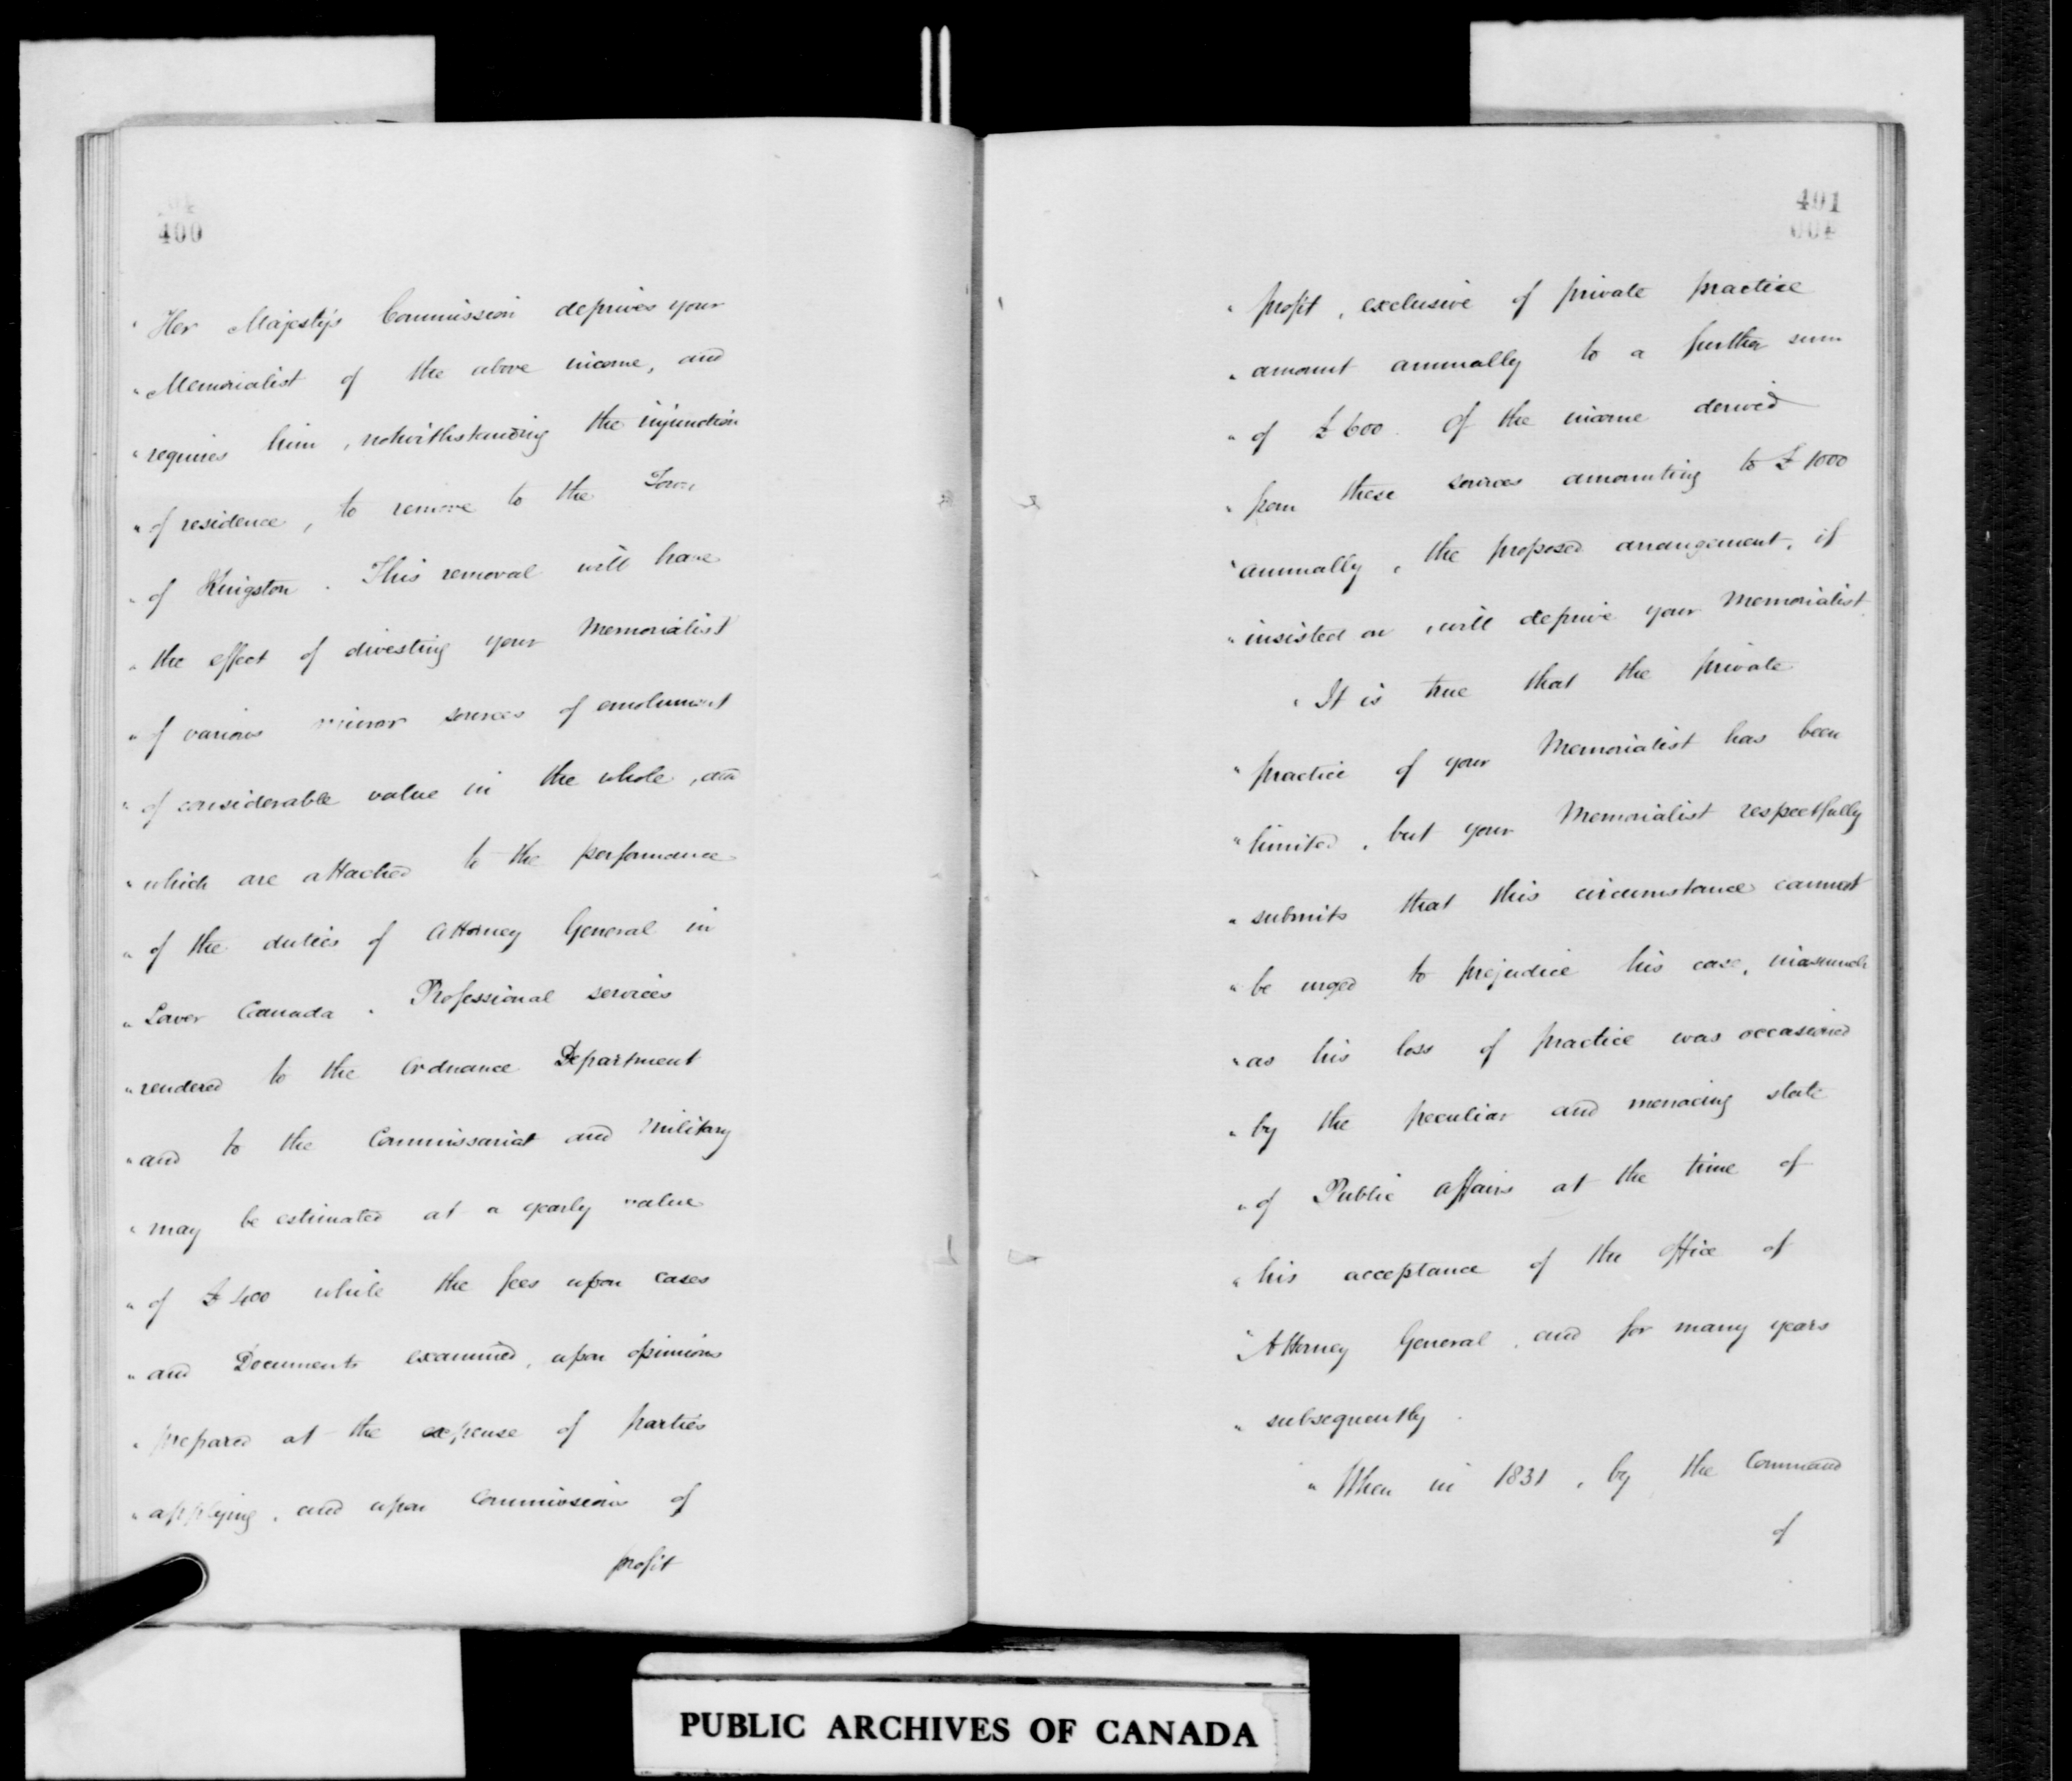 400
" Her Majesty's Commission deprives your
" Memorialist of the above income, and
" requires him, notwithstanding the injunction
" of residence, to remove to the Town
" of Kingston. This removal will have
" the effect of divesting your Memorialist
" of various minor sources of emolument
" of considerable value in the whole, and
" which are attached to the performance
" of the duties of Attorney General in
" Lower Canada. Professional services
" rendered to the Ordnance Department
" and to the Commissariat and Military
" may be estimated at a yearly value
" of £400 while the fees upon cases
" and Documents examined, upon opinions
" prepared at the expense of parties
" applying, and upon Commissions of
profit
401
" profit, exclusive of private practice
" amount annually to a further sum
" of £600. Of the income derived
" from these sources amounting to £1000
" annually, the proposed arrangement, if
" insisted on, will deprive your Memorialist.
" It is true that the private
" practice of your Memorialist has been
" limited, but your Memorialist respectfully
" submits that this circumstance cannot
" be urged to prejudice his case, inasmuch
" as his loss of practice was occasioned
" by the peculiar and menacing state
" of Public affairs at the time of
" his acceptance of the office of
" Attorney General, and for many years
" subsequently.
" When in 1831, by the Command
of
PUBLIC ARCHIVES OF CANADA